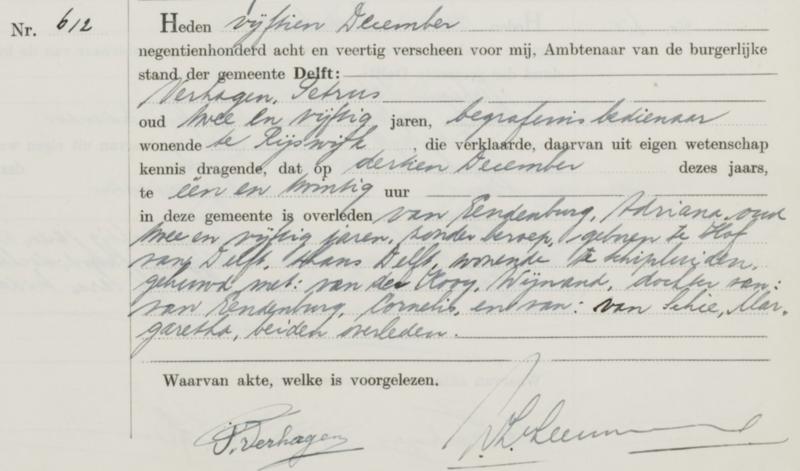 Nr. 612
Heden vijftien December
negentienhonderd acht en veertig verscheen voor mij, Ambtenaar van de burgerlijke
stand der gemeente Delft:
Verhagen, Petrus
oud twee en vijftig jaren, begrafenisbedienaar
wonende te Rijswijk, die verklaarde, daarvan uit eigen wetenschap
kennis dragende, dat op dertien December dezes jaars,
te één en twintig uur
in deze gemeente is overleden van Eendenburg, Adriana, oud
twee en vijftig jaren, zonder beroep, geboren te Hof
van Delft, thans Delft, wonende te Schipluiden,
gehuwd met: van der Kooy, Wijnand, dochter van:
van Eendenburg, Cornelis, en van: van Schie, Mar-
garetha, beiden overleden.
Waarvan akte, welke is voorgelezen.
P. Verhagen